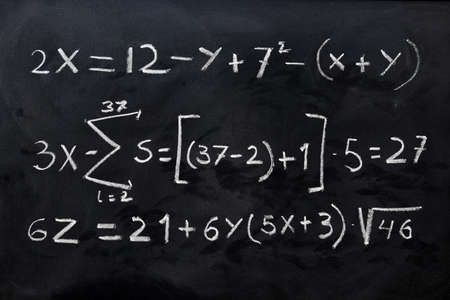 2X = 12 - Y + 7² - (x + Y)
37
3X - Σ 5 = [(37-2)+1] · 5 = 27
i=2
6Z = 21 + 6Y(5X+3) · √46